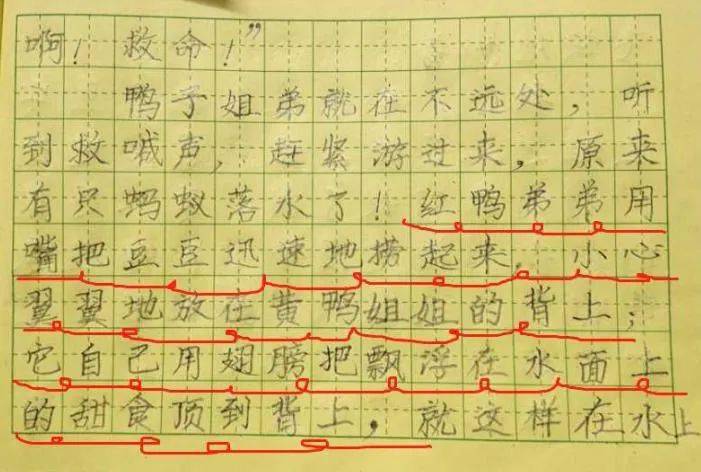 啊！救命！”
鸭子姐弟就在不远处，听
到救喊声，赶紧游过来，原来
有只蚂蚁落水了！红鸭弟弟用
嘴把豆豆迅速地捞起来，小心
翼翼地放在黄鸭姐姐的背上；
它自己用翅膀把飘浮在水面上
的甜食顶到背上，就这样在水上